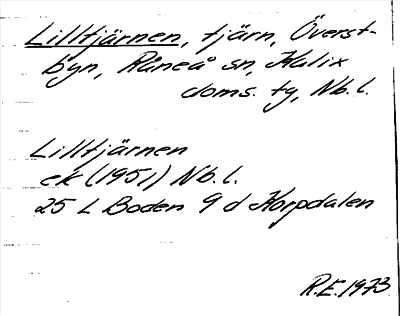 Lilltjärnen, tjärn, Överst-
byn, Råneå sn, Kalix
doms. tg, Nb. l.
Lilltjärnen
ek (1951) Nb. l.
25 L Boden 9 d Korpdalen
R.E. 1973